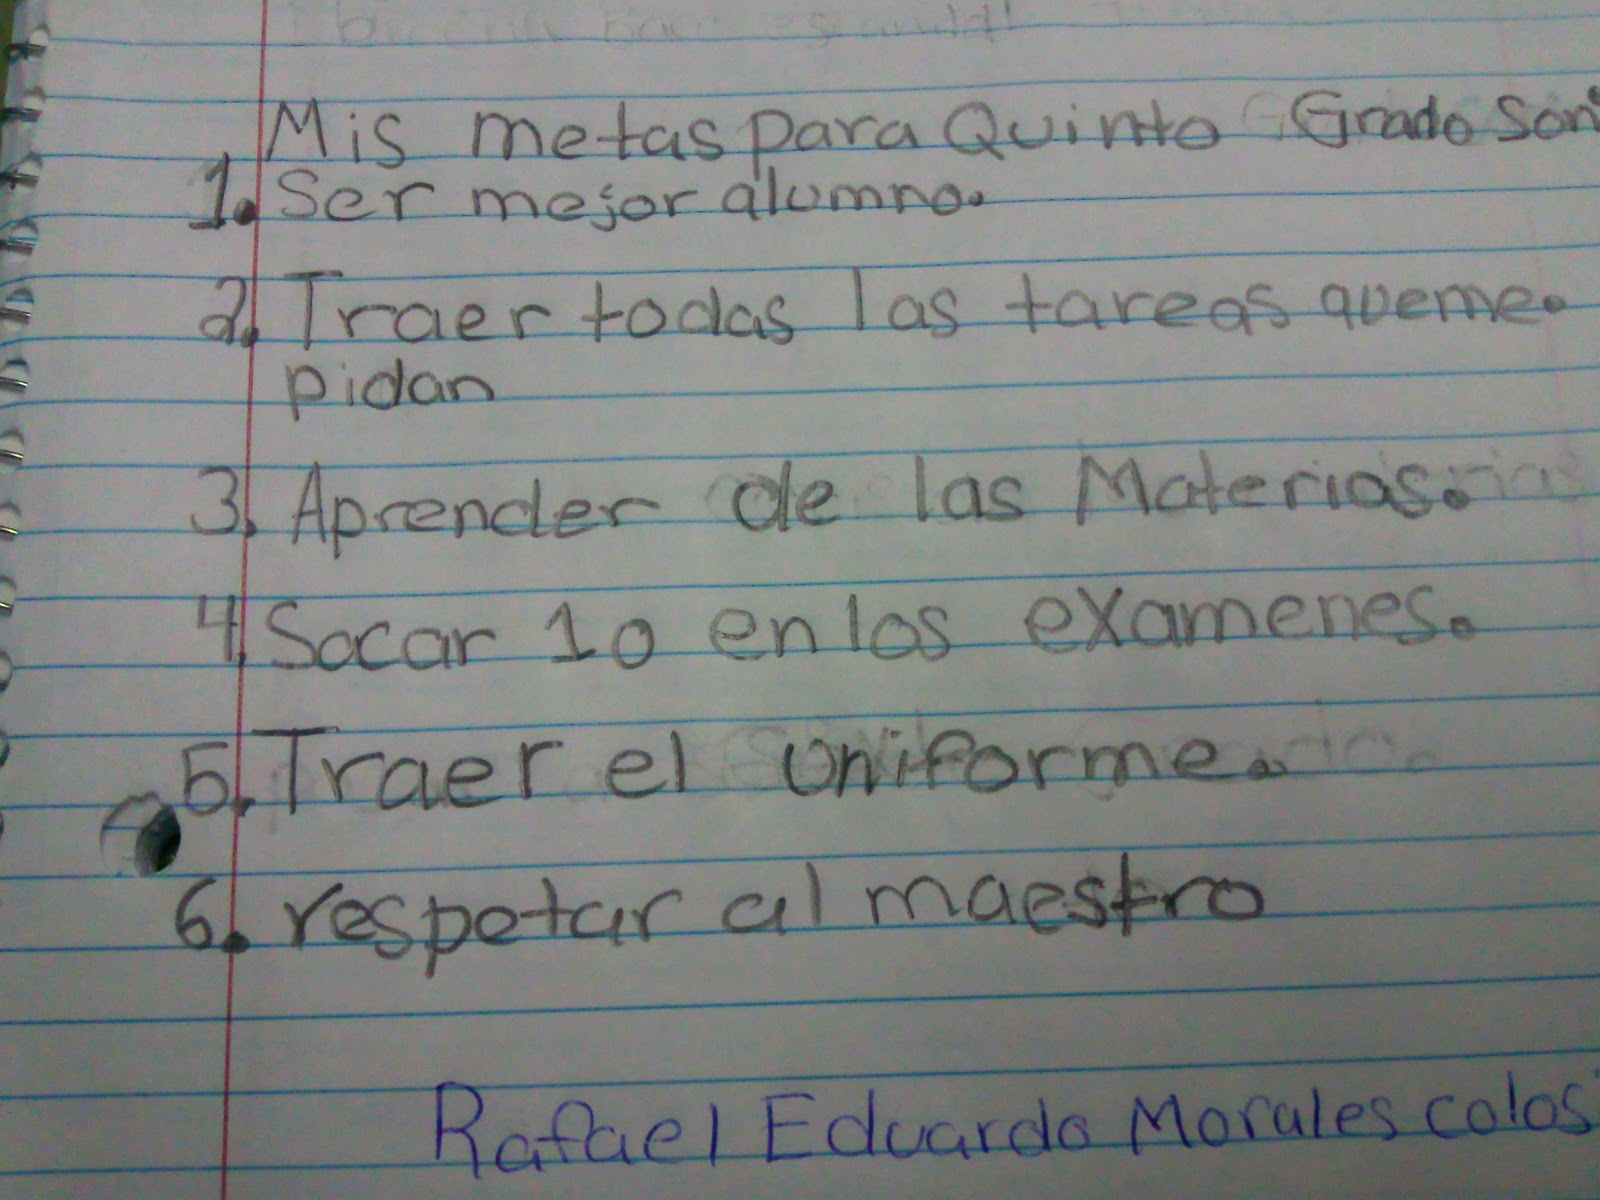 Mis metas para Quinto Grado Son:
1. Ser mejor alumno.
2. Traer todas las tareas queme.
pidan
3. Aprender de las Materias.
4. Sacar 10 en los examenes.
5. Traer el uniforme.
6. respetar al maestro
Rafael Eduardo Morales colos